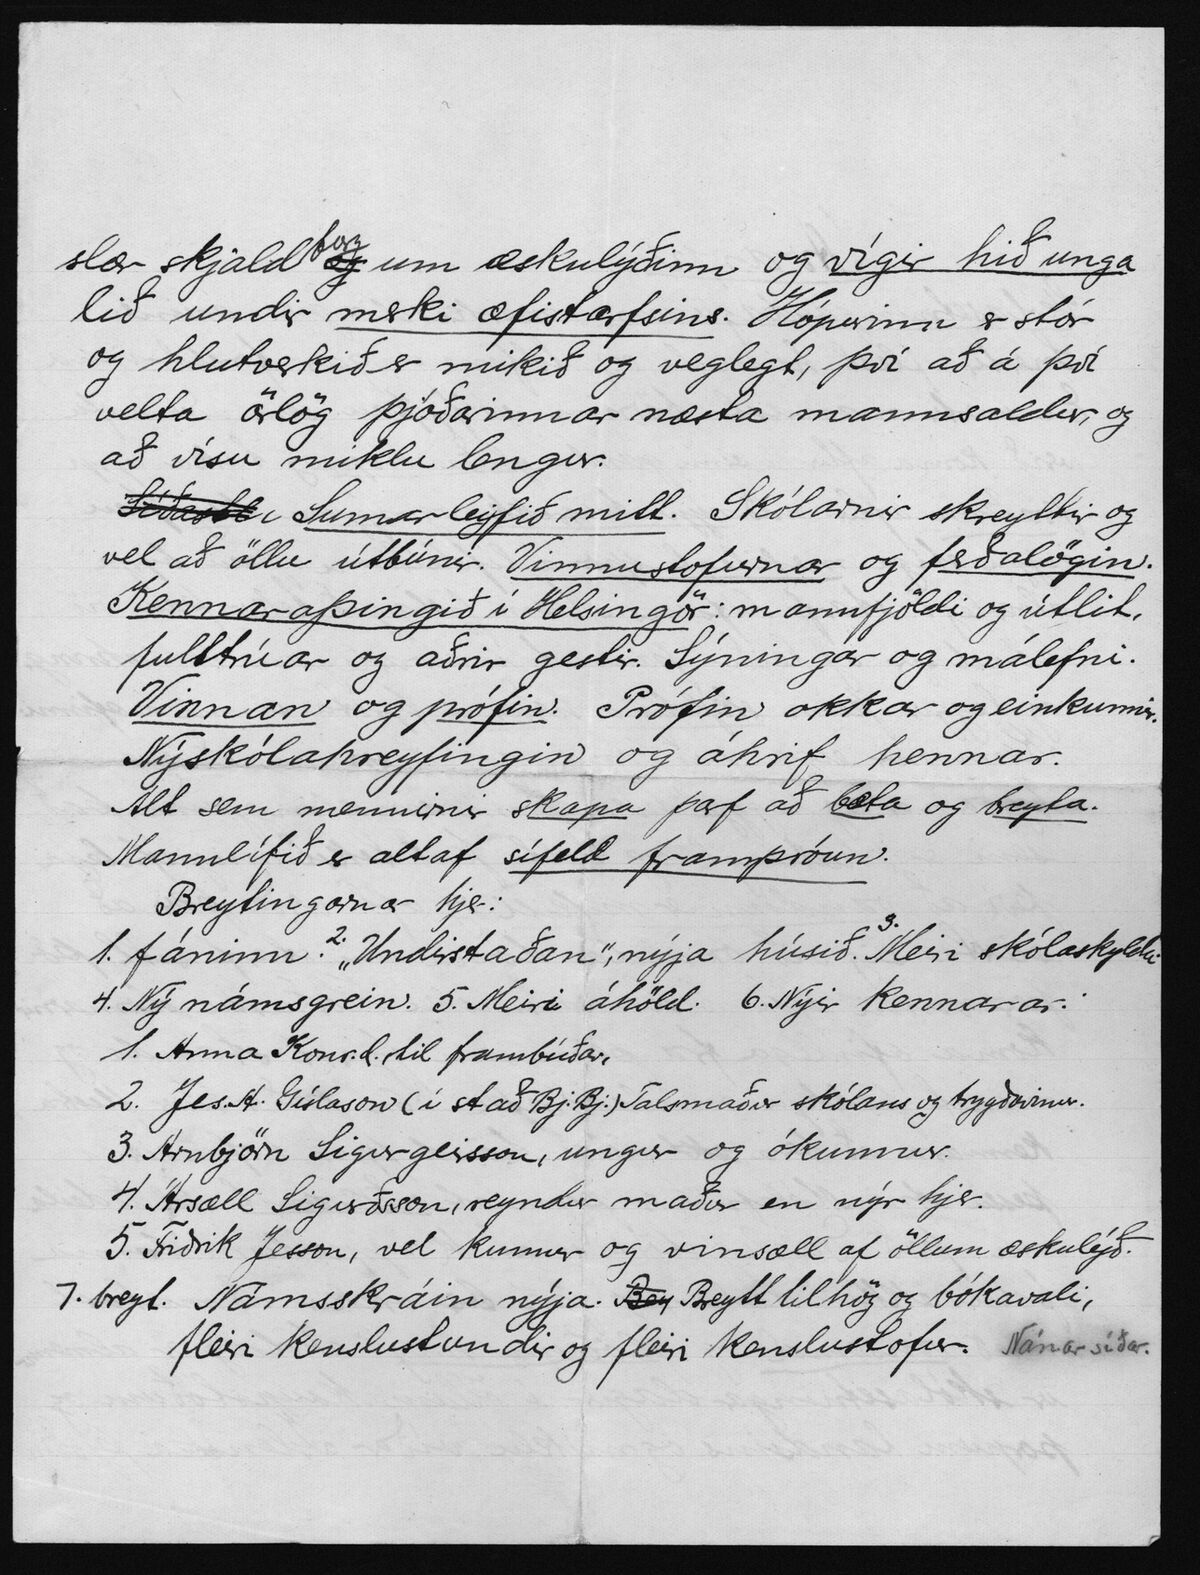 slær skjaldborg um æskulýðinn og vígir hið unga
lið undir merki æfistarfsins. Hópurinn er stór
og hlutverkið er mikið og veglegt, því að á því
velta örlög þjóðarinnar næsta mannsaldur, og
að vísu miklu lengur.
Síðasti Sumarleyfið mitt. Skólarnir skreyttir og
vel að öllu útbúnir. Vinnustofurnar og ferðalögin.
Kennaraþingið í Helsingör: mannfjöldi og útlit,
fulltrúar og aðrir gestir. Sýningar og málefni.
Vinnan og prófin. Prófin okkar og einkunnir.
Nýskólahreyfingin og áhrif hennar.
Alt sem mennirnir skapa þarf að bæta og breyta.
Mannlífið er altaf sífeld framþróun.
Breytingarnar hjer:
1. fáninn. 2. „Undirstaðan“, nýja húsið. 3. Meiri skólaskylda
4. Ný námsgrein. 5. Meiri áhöld. 6. Nýir kennarar:
1. Anna Konr.d. til frambúðar,
2. Jes. A. Gíslason (í stað Bj. Bj.) Talsmaður skólans og trygðavinur.
3. Arnbjörn Sigurgeirsson, ungur og ókunnur.
4. Ársæll Sigurðsson, reyndur maður en nýr hjer.
5. Friðrik Jesson, vel kunnur og vinsæll af öllum æskulýð.
7. breyt. Námsskráin nýja. Bey Breytt tilhög og bókavali,
fleiri kenslustundir og fleiri kenslustofur. Nánar síðar.